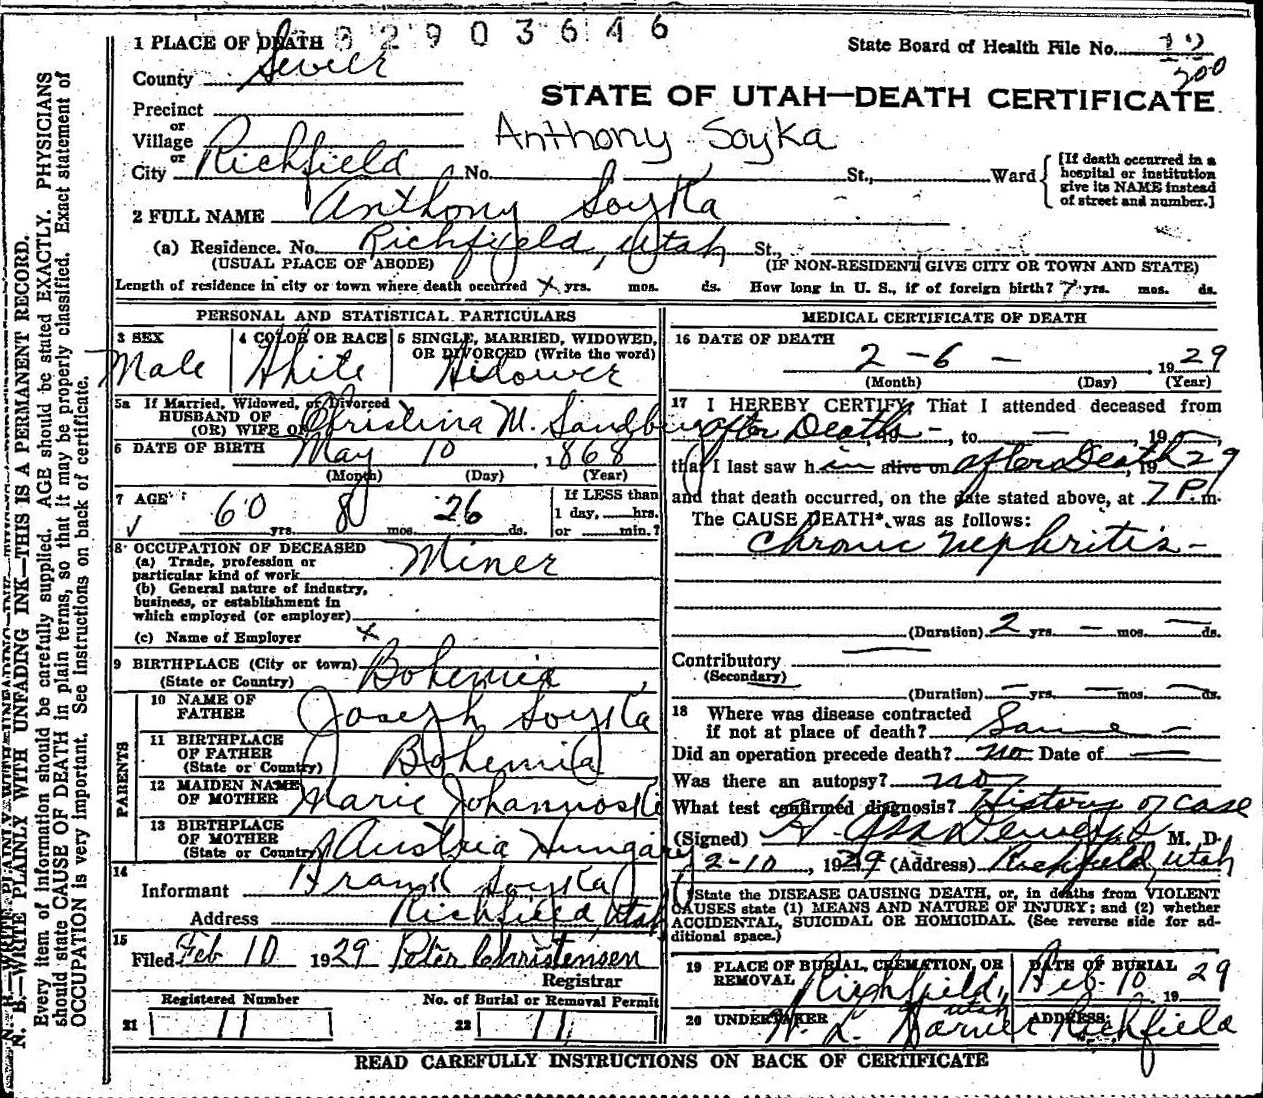 1 PLACE OF DEATH 82903646
State Board of Health File No. 12
200
County Sevier
STATE OF UTAH—DEATH CERTIFICATE
Precinct
or
Village
Anthony Soyka
or
City Richfield No. St., Ward
[If death occurred in a
hospital or institution
give its NAME instead
of street and number.]
2 FULL NAME Anthony Soyka
(a) Residence. No. Richfield, Utah St.,
(USUAL PLACE OF ABODE) (IF NON-RESIDENT GIVE CITY OR TOWN AND STATE)
Length of residence in city or town where death occurred x yrs. mos. ds. How long in U. S., if of foreign birth? ? yrs. mos. ds.
PERSONAL AND STATISTICAL PARTICULARS
3 SEX
Male
4 COLOR OR RACE
White
5 SINGLE, MARRIED, WIDOWED,
OR DIVORCED (Write the word)
Widower
5a If Married, Widowed, or Divorced
HUSBAND OF
(OR) WIFE OF Christina M. Sandburg
6 DATE OF BIRTH May 10, 1868
(Month) (Day) (Year)
7 AGE 60 yrs. 8 mos. 26 ds.
If LESS than
1 day, hrs.
or min.?
8 OCCUPATION OF DECEASED
(a) Trade, profession or
particular kind of work Miner
(b) General nature of industry,
business, or establishment in
which employed (or employer)
(c) Name of Employer x
9 BIRTHPLACE (City or town)
(State or Country) Bohemia
PARENTS
10 NAME OF
FATHER Joseph Soyka
11 BIRTHPLACE
OF FATHER
(State or Country) Bohemia
12 MAIDEN NAME
OF MOTHER Marie Johannoski
13 BIRTHPLACE
OF MOTHER
(State or Country) Austria Hungary
14
Informant Frank Soyka
Address Richfield, Utah
15
Filed Feb 10 1929 Peter Christensen
Registrar
Registered Number
21 11
No. of Burial or Removal Permit
22 11
MEDICAL CERTIFICATE OF DEATH
16 DATE OF DEATH
2 - 6 - , 1929
(Month) (Day) (Year)
17 I HEREBY CERTIFY, That I attended deceased from
after Death - , to - , 19
that I last saw h im alive on after Death, 1929
and that death occurred, on the date stated above, at 7 P. m.
The CAUSE DEATH*, was as follows:
Chronic Nephritis -
(Duration) 2 yrs. - mos. - ds.
Contributory
(Secondary)
(Duration) - yrs. - mos. - ds.
18 Where was disease contracted
if not at place of death? Same -
Did an operation precede death? no Date of
Was there an autopsy? no
What test confirmed diagnosis? History of case
(Signed) M. D.
2-10, 1929 (Address) Richfield, Utah
State the DISEASE CAUSING DEATH, or, in deaths from VIOLENT
CAUSES state (1) MEANS AND NATURE OF INJURY; and (2) whether
ACCIDENTAL, SUICIDAL OR HOMICIDAL. (See reverse side for ad-
ditional space.)
19 PLACE OF BURIAL, CREMATION, OR
REMOVAL Richfield, Utah
DATE OF BURIAL
Feb. 10 1929
20 UNDERTAKER
ADDRESS
Richfield
READ CAREFULLY INSTRUCTIONS ON BACK OF CERTIFICATE
N. B.—WRITE PLAINLY WITH UNFADING INK—THIS IS A PERMANENT RECORD.
Every item of information should be carefully supplied. AGE should be stated EXACTLY. PHYSICIANS
should state CAUSE OF DEATH in plain terms, so that it may be properly classified. Exact statement of
OCCUPATION is very important. See Instructions on back of certificate.